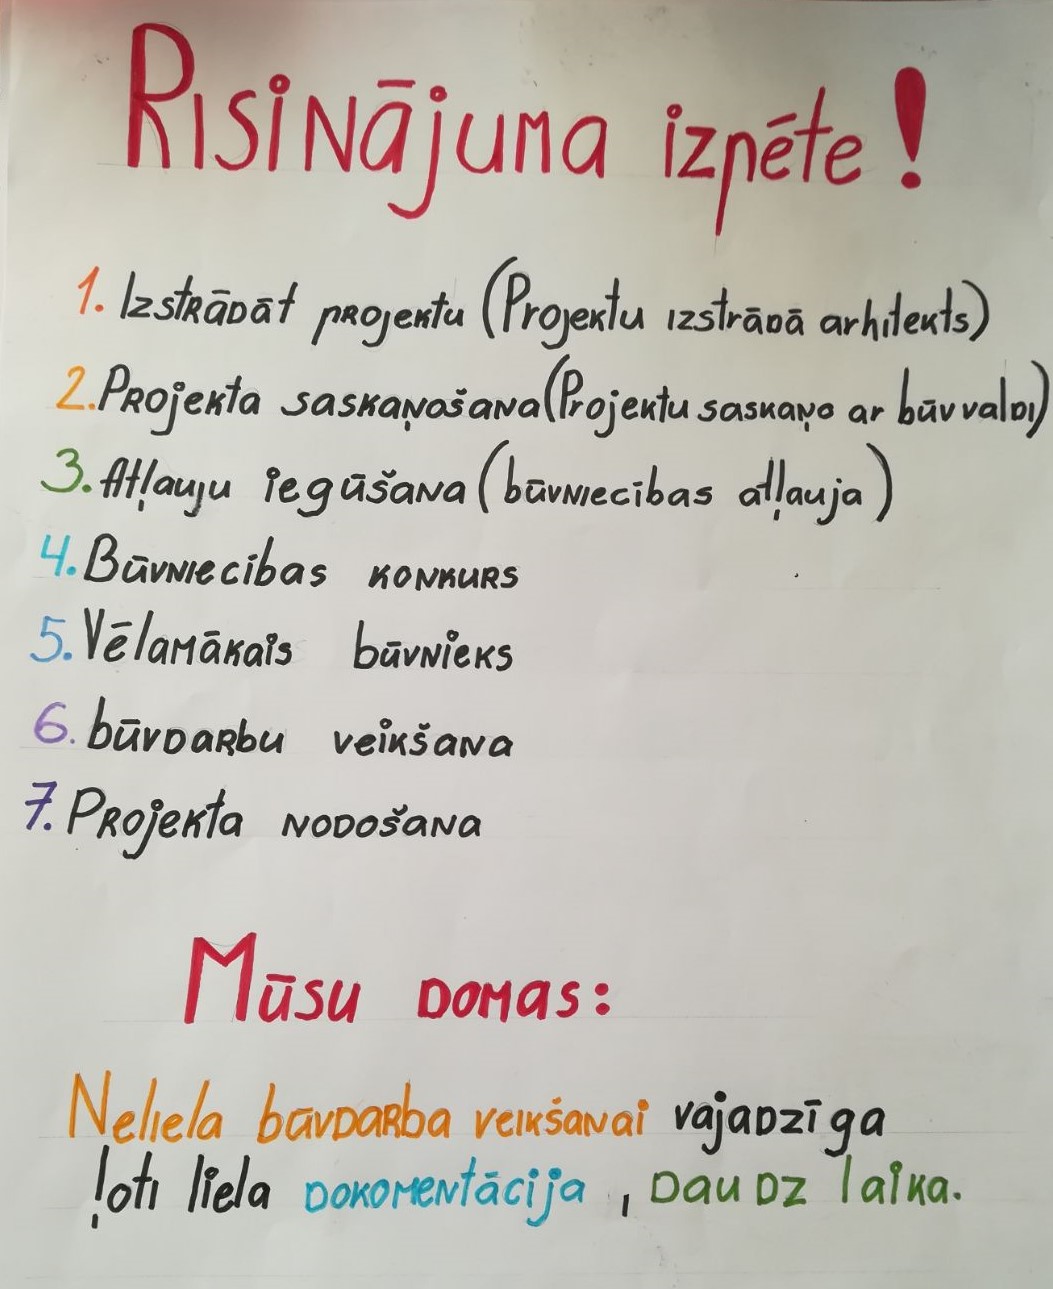 Risinājuma izpēte!
1. Izstrādāt projektu (Projektu izstrādā arhitekts)
2. Projekta saskaņošana (Projektu saskaņo ar būvvaldi)
3. Atļauju iegūšana (būvniecības atļauja)
4. Būvniecības konkurs
5. Vēlamākais būvnieks
6. būvdarbu veikšana
7. Projekta nodošana
Mūsu domas:
Neliela būvdarba veikšanai vajadzīga
ļoti liela dokomentācija, daudz laika.